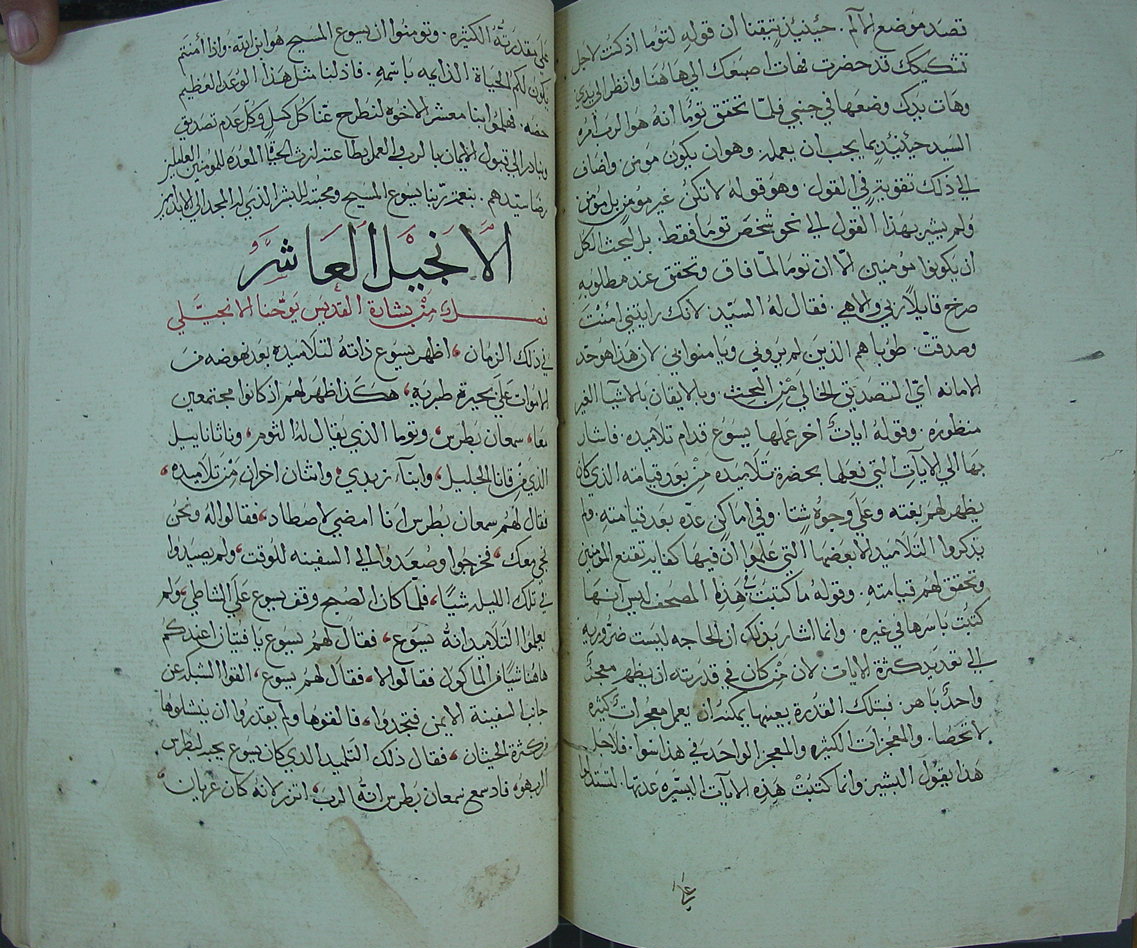 تصد موضع الألم. حينيذ تيقنا ان قوله لتوما اذ كنت لاجل
تشككك قد حضرت فهات اصبعك الى هاهنا وانظر الى يدي
وهات يدك وضعها في جنبي فلما تحقق توما انه هو الرب امره
السيد حينيذ بما يجب ان يعمله. وهو ان يكون مومن واضاف
الي ذلك تقوية في القول. وهو قوله لا تكن غير مومن بل مومن
ولم يشير بهذا القول الي نحو شخص توما فقط. بل يبحث الكل
ان يكونوا مومنين الا ان توما لما فاق وتحقق عند مطلوبه
صرخ قايلا ربي والاهي. فقال له السيد لانك رايتني امنت
وصدقت. طوباهم الذين لم يروني ويامنوا بي لان هذا هو حد
الامانه اي التصديق الخالي من البحث وبالايقان بالاشيا الغير
منظوره. وقوله ايات اخر عملها يسوع قدام تلاميذه. فاشار
بها الي الايات التي فعلها بحضرة تلاميذه من بعد قيامته الذي كان
يظهر لهم بغته وعلي وجوه شتا. وفي اماكن عده بعد قيامته. ولم
يذكروا التلاميذ الا بعضها التي علموا ان فيها كفايه تقنع المومنين
وتحقق لهم قيامته. وقوله ما كتبت في هذه المصحف ليس انها
كتبت باسرها في غيره. وانما اشار بذلك ان الحاجه ليست ضروريه
الي تعديد كثرة الايات لان من كان في قدرته ان يظهر معجز
واحد باهر. فبتلك القدرة بعينها يمكنه ان يعمل معجزات كثيره
لا تحصا. والمعجزات الكثيره والمعجز الواحد في هذا سوا. فلاجل
هذا يقول البشير وانما كتبت هذه الايات اليسيره عددها. لتستدلوا
علي
علي مقدرته الكثيره. وتومنوا ان يسوع المسيح هو ابن الله. واذا امنتم
يكون لكم الحياة الدايمه باسمه. فاذ لنا مثل هذا الوعد العظيم
حصه. فهلموا بنا معشر الاخوه لنطرح عنا كل كسل وكل عدم تصديق
ونبادر الي قبول الايمان بالرب وفي العمل بطاعته لنرث الحياة المعده للمومنين العاملين
رضا سيدهم. بنعمة ربنا يسوع المسيح ومحبته للبشر الذي له المجد الي الابد امين
الانجيل العاشر
فصل من بشارة القديس يوحنا الانجيلي
في ذلك الزمان، اظهر يسوع ذاته لتلاميذه بعد نهوضه من
الاموات علي بحيرة طبرية، هكذا ظهر لهم اذ كانوا مجتمعين
معا، سمعان بطرس، وتوما الذي يقال له التوم، وناثاناييل
الذي من قانا الجليل، وابنآ زبدي، واثنان اخران من تلاميذه،
فقال لهم سمعان بطرس انا امضي لاصطاد، فقالوا له ونحن
نجي معك، فخرجوا وصعدوا الي السفينه للوقت، ولم يصيدوا
في تلك الليله شيا، فلما كان الصبح وقف يسوع علي الشاطي، ولم
يعلموا التلاميذ انه يسوع، فقال لهم يسوع يا فتيان اعندكم
هاهنا شيا من الماكول فقالوا لا، فقال لهم يسوع، القوا الشبكه عن
جانب السفينة الايمن فتجدوا، فالقوها ولم يقدروا ان ينشلوها
من كثرة الحيتان، فقال ذلك التلميذ الذي كان يسوع يحبه لبطرس
الرب هو، فاذ سمع سمعان بطرس انه الرب، اتزر لانه كان عريان،